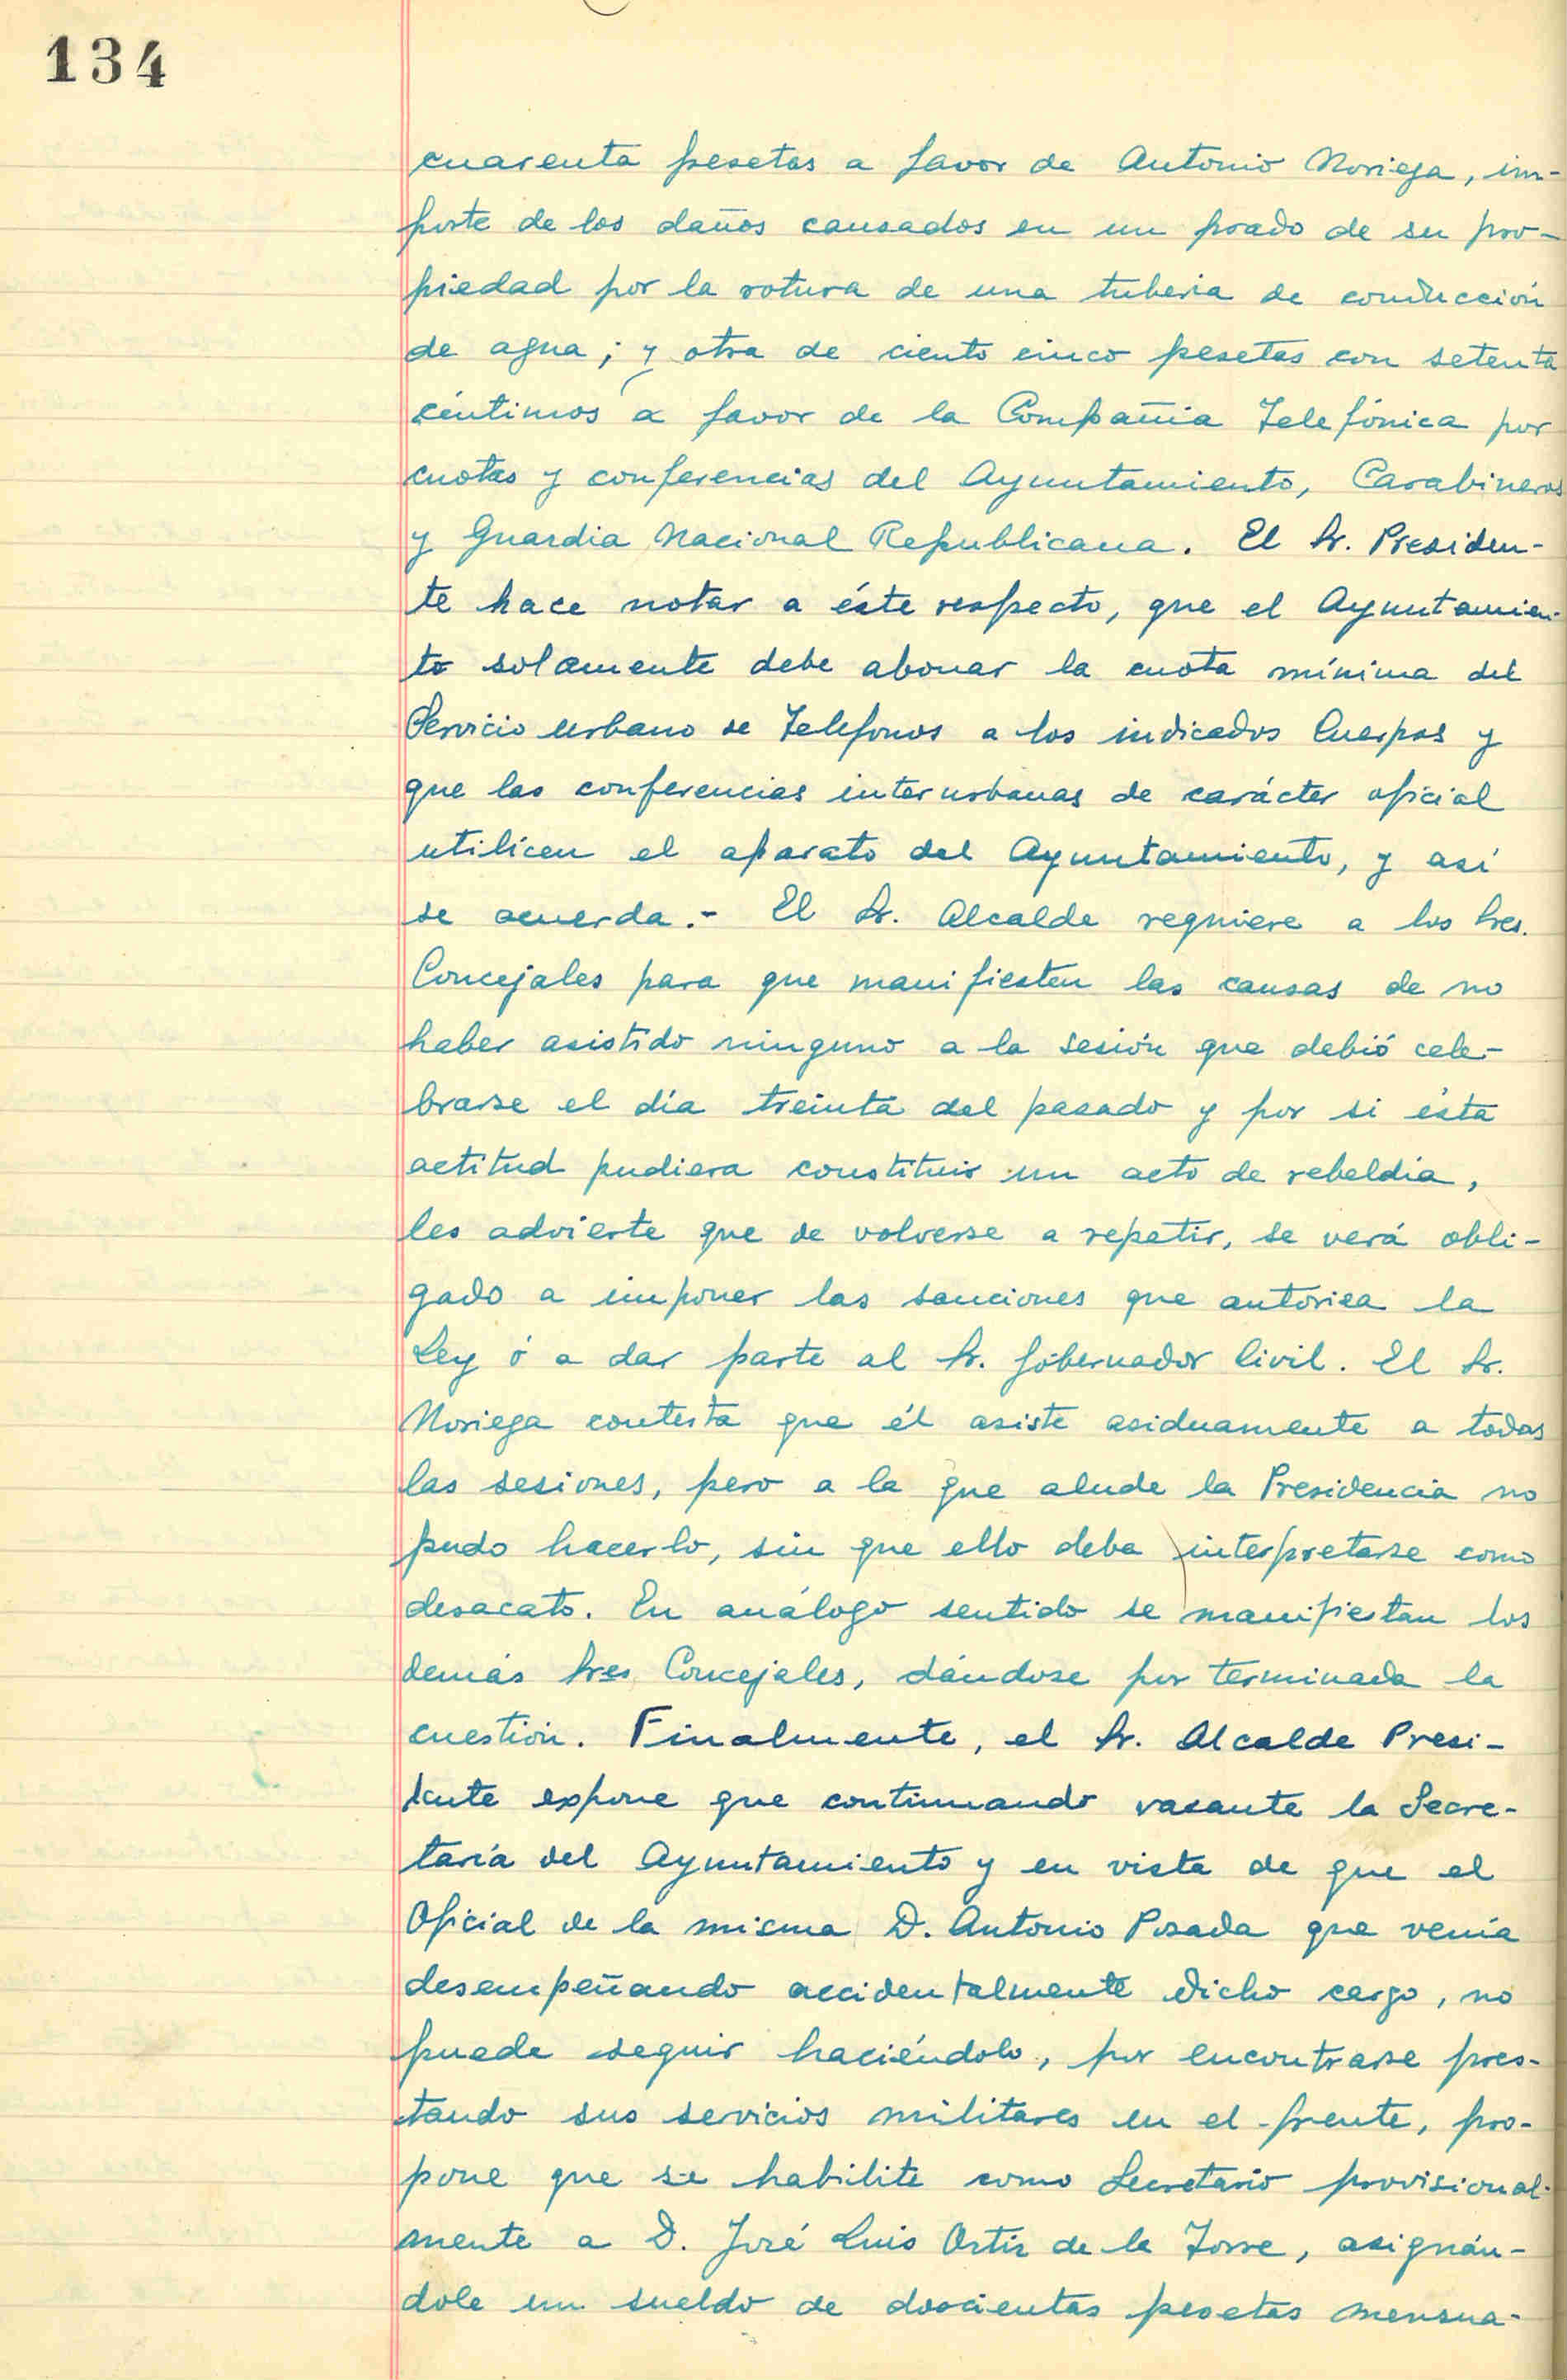 134
cuarenta pesetas a favor de Antonio Noriega, im-
porte de los daños causados en un prado de su pro-
piedad por la rotura de una tuberia de conducción
de agua; y otra de ciento cinco pesetas con setenta
céntimos a favor de la Compañia Telefónica por
cuotas y conferencias del Ayuntamiento, Carabineros
y Guardia Nacional Republicana. El Sr. Presiden-
te hace notar a éste respecto, que el Ayuntamien-
to solamente debe abonar la cuota mínima del
Servicio urbano de Telefonos a los indicados Cuerpos y
que las conferencias interurbanas de carácter oficial
utilicen el aparato del Ayuntamiento, y así
se acuerda.- El Sr. Alcalde requiere a los Sres.
Concejales para que manifiesten las causas de no
haber asistido ninguno a la sesión que debió cele-
brarse el día treinta del pasado y por si ésta
actitud pudiera constituir un acto de rebeldía,
les advierte que de volverse a repetir, se verá obli-
gado a imponer las sanciones que autoriza la
Ley ó a dar parte al Sr. Gobernador Civil. El Sr.
Noriega contesta que él asiste asiduamente a todas
las sesiones, pero a la que alude la Presidencia no
pudo hacerlo, sin que ello deba interpretarse como
desacato. En análogo sentido se manifiestan los
demás Sres Concejales, dándose por terminada la
cuestión. Finalmente, el Sr. Alcalde Presi-
dente expone que continuando vacante la Secre-
taría del Ayuntamiento y en vista de que el
Oficial de la misma D. Antonio Posada que venía
desempeñando accidentalmente dicho cargo, no
puede seguir haciéndolo, por encontrarse pres-
tando sus servicios militares en el frente, pro-
pone que se habilite como Secretario provisional-
mente a D. José Luis Ortiz de la Torre, asignán-
dole un sueldo de doscientas pesetas mensua-